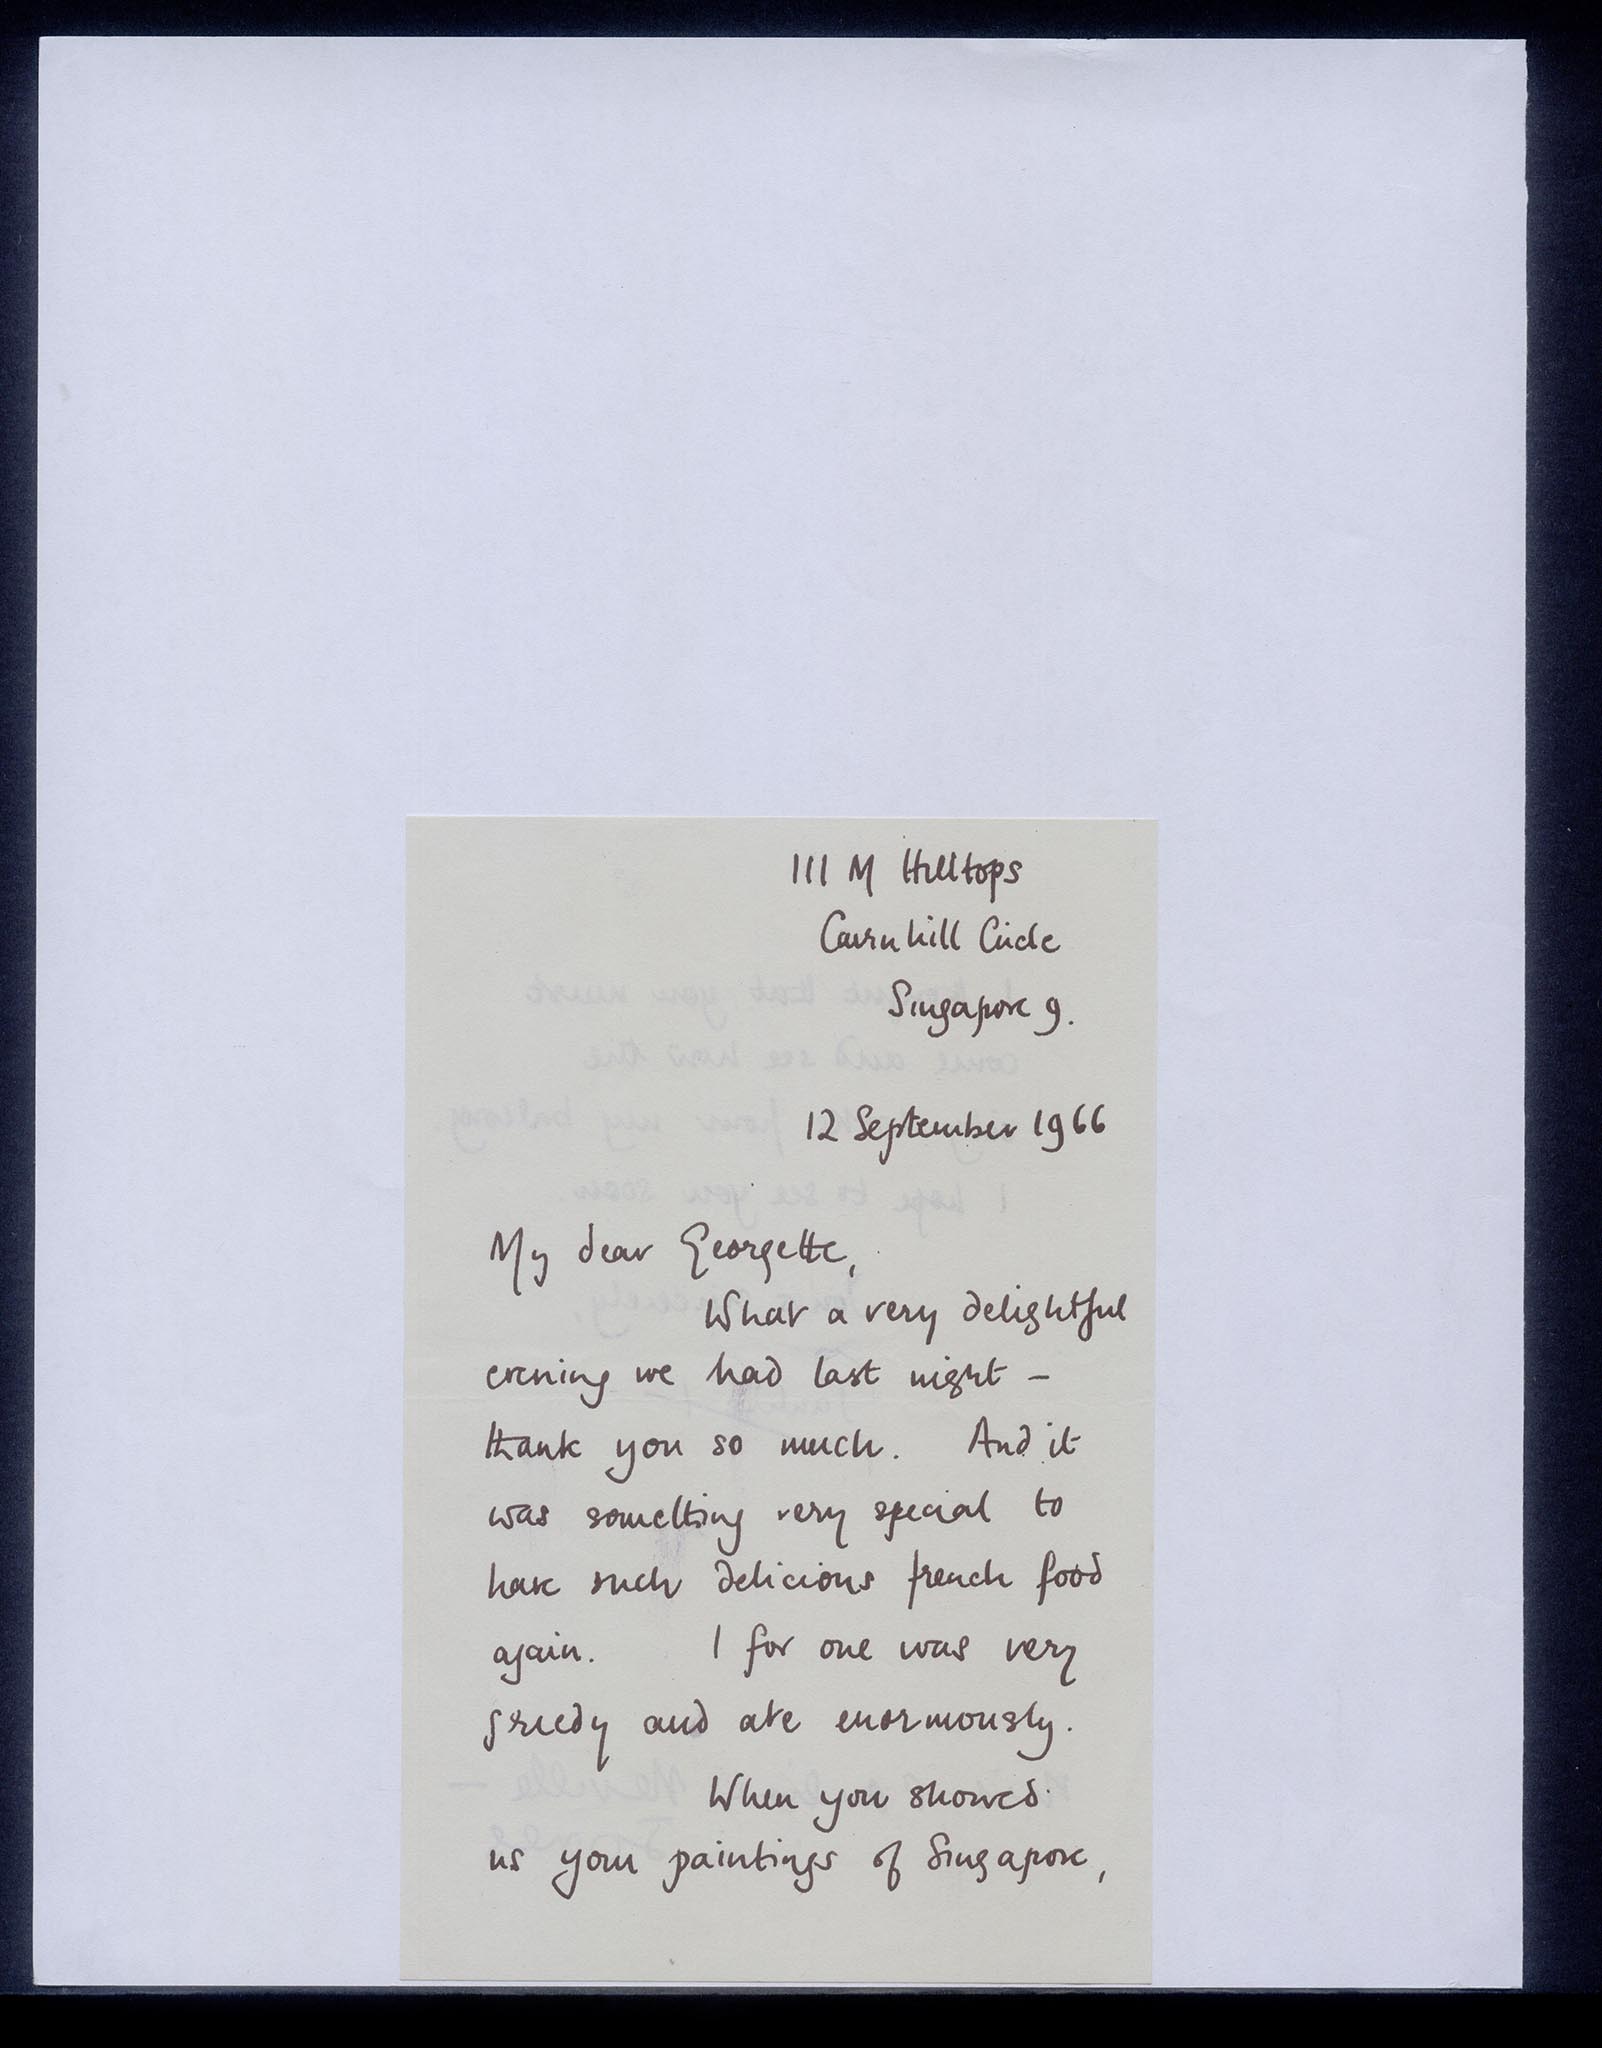 111 M Hilltops
Cairnhill Circle
Singapore 9.
12 September 1966
My dear Georgette,
What a very delightful
evening we had last night —
thank you so much. And it
was something very special to
have such delicious french food
again. I for one was very
greedy and ate enormously.
When you showed
us your paintings of Singapore,